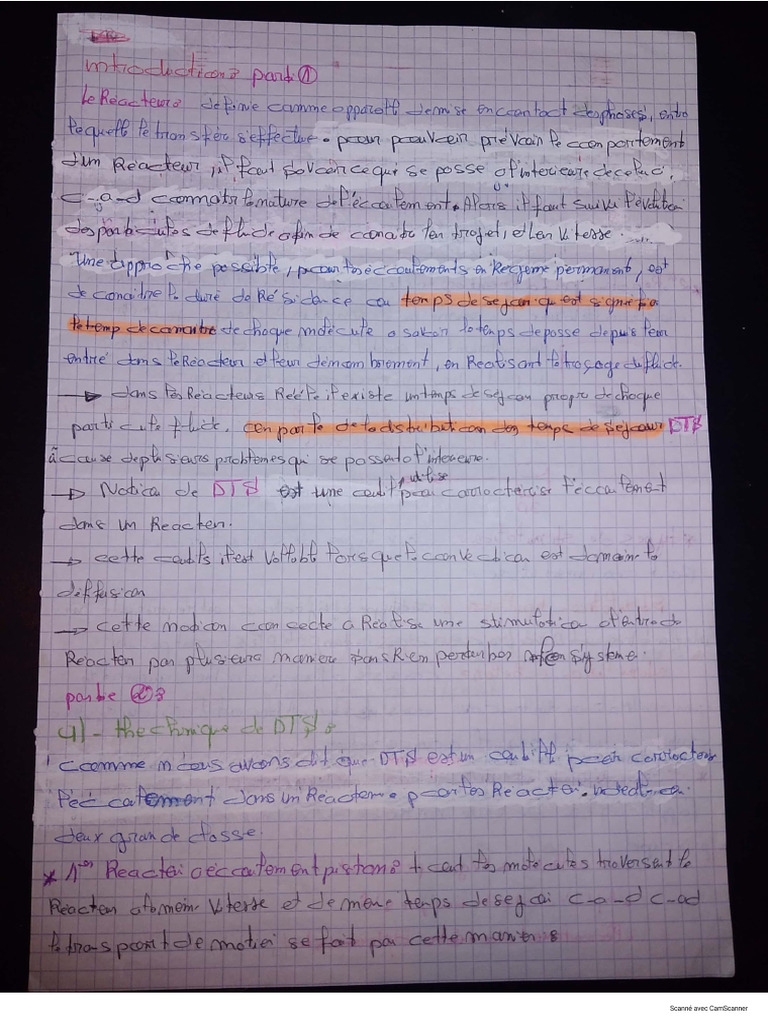 introduction: part ①
Le Réacteur: definie comme appareil de mise en contact des phases, entre
lequell le transfer s'effectue. pour pouvoir prévoir le comportement
d'un Réacteur, il faut savoir ce qui se passe a l'interieure de celui ci,
c-a-d connaitre la nature de l'écoulement. Alors il faut suivre l'évolution
des particules de fluide afin de conaitre leur trajet, et leur vitesse.
Une approche possible, pour les écoulements en Regime permanent, est
de conaitre la duré de Résidance ou temps de sejour qui est
le temp de de chaque molécule a savoir le temps de passe depuis leur
entré dans le Réacteur et leur, en Realisant le traçage du fluide.
→ dans les Réacteurs Réel il existe un temps de sejour propre de chaque
particule fluide, on parle de la distribution des temps de sejour DTS
à cause de plusieurs problèmes qui se passe a l'interieure.
→ Notion de DTS est une outil utilise pour caractérise l'écoulement
dans un Reacteur.
→ cette outils il est valable lorsque la convection est domaine la
diffusion
→ cette notion consecte a Réalise une stimulation d'entré du
Réacteur par plusieurs maniere sans Rien perturber system.
partie ②:
4)- thechnique de DTS:
comme nous avons dit que DTS est un outil pour caractérise
l'écoulement dans un Réacteur pour les Réacteur
deux grande classe.
* 1er Reacteur a écoulement piston: tout les molécules traversent le
Réacteur a la meme viterse et de meme temps de sejour c-a-d
le transport de matier se fait par cette manier:
Scanné avec CamScanner